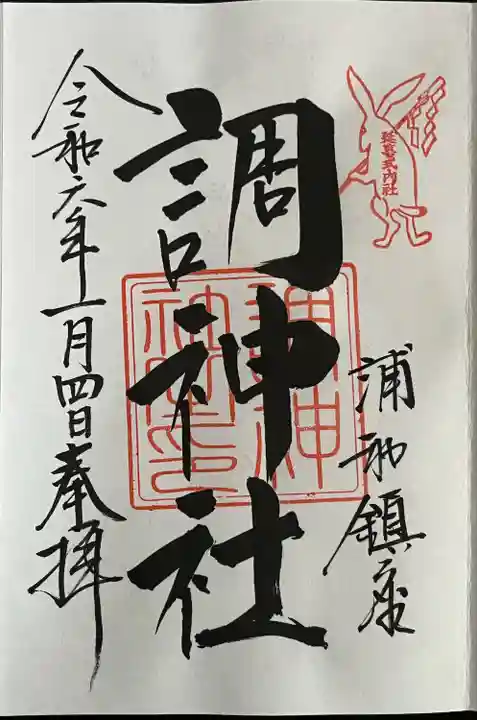 延喜式内社
浦和鎮座
調神社
調神社印
令和六年十一月四日奉拝